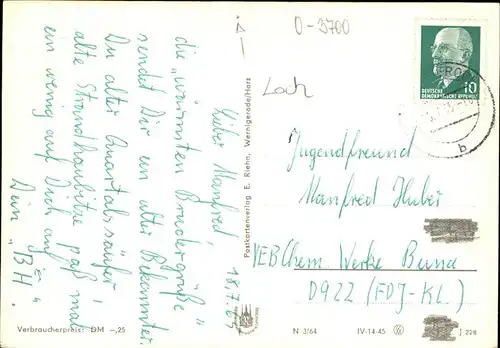 Lieber Manfred,
18.7.
die „wärmsten Brudergrüße"
sendet Dir ein alter Bekannter.
Du alter Quartalssäufer,
alte Strandhaubitze paß mal
ein wenig auf Dich auf
Dein „BH."
Verbraucherpreis: DM -,25
Postkartenverlag E. Riehn, Wernigerode/Harz
N 3/64
IV-14-45
J 228
0-3700
Loch
DEUTSCHE
DEMOKRATISCHE REPUBLIK
10
b
Jugendfreund
Manfred Huber
VEB Chem. Werke Buna
D922 (FDJ-KL.)